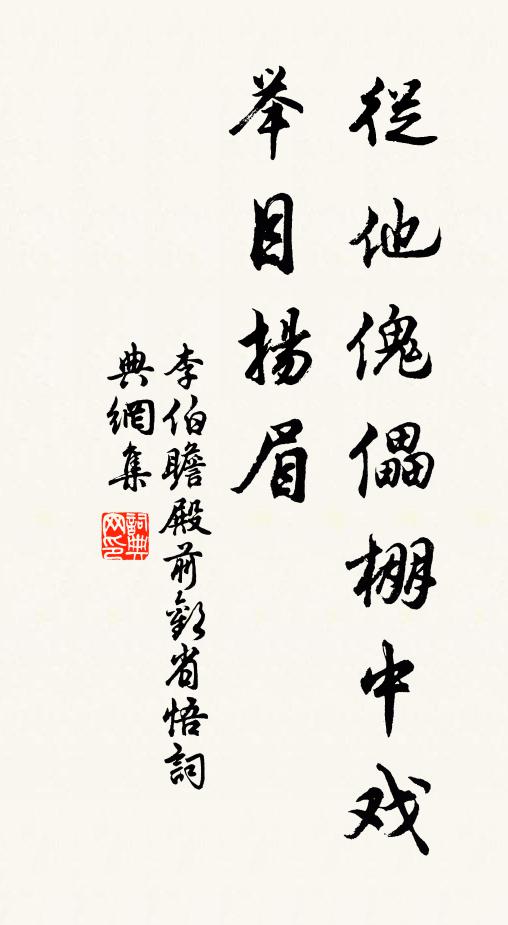 從他傀儡棚中戏
举目揚眉
李伯瞻殿前歡省悟詞
典網集
詞典
网印